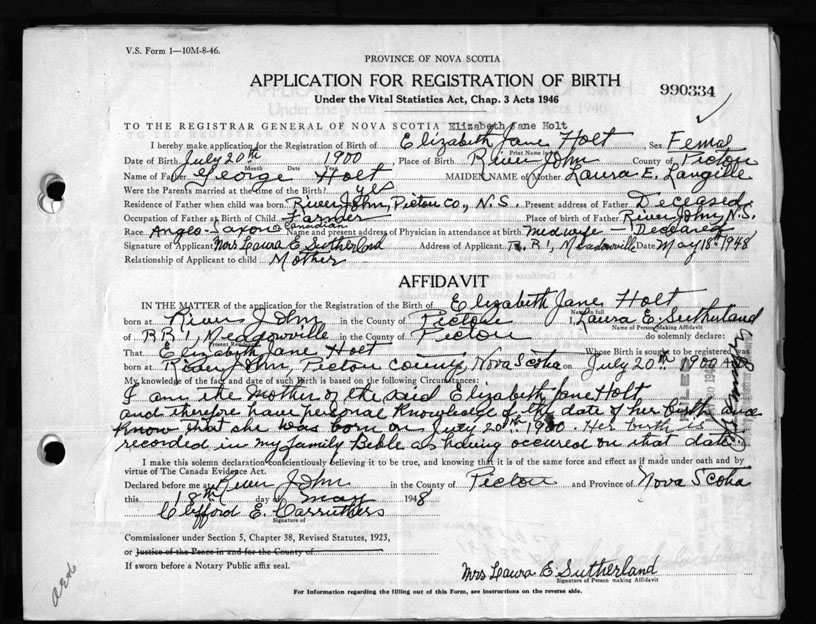 V.S. Form 1—10M-8-46.
PROVINCE OF NOVA SCOTIA
APPLICATION FOR REGISTRATION OF BIRTH
990334
Under the Vital Statistics Act, Chap. 3 Acts 1946
TO THE REGISTRAR GENERAL OF NOVA SCOTIA Elizabeth Jane Holt
I hereby make application for the Registration of Birth of Elizabeth Jane Holt, Sex Femal
Print Name in full
Date of Birth July 20th 1900, Place of Birth River John County of Pictou
Month Date Year
Name of Father George Holt MAIDEN NAME of Mother Laura E. Langille
Were the Parents married at the time of the Birth? yes
Residence of Father when child was born River John, Pictou Co., N.S. Present address of Father Deceased
Occupation of Father at Birth of Child Farmer Place of birth of Father River John, N.S.
Race Anglo-Saxon Canadian Name and present address of Physician in attendance at birth midwife —
Signature of Applicant Mrs Laura E Sutherland Address of Applicant R.R.1, Meadowville Date May 18th 1948
Relationship of Applicant to child Mother
AFFIDAVIT
IN THE MATTER of the application for the Registration of the Birth of Elizabeth Jane Holt
Name in full
born at River John in the County of Pictou I, Laura E. Sutherland
Name of Person Making Affidavit
of R.R.1, Meadowville in the County of Pictou do solemnly declare:
Present Residence
That Elizabeth Jane Holt Whose Birth is sought to be registered was
born at River John, Pictou County, Nova Scotia on July 20th 1900 A.D.
My knowledge of the fact and date of such Birth is based on the following Circumstances:
I am the mother of the said Elizabeth Jane Holt
and therefore have personal knowledge of the date of her birth and
know that she was born on July 20th 1900. Her birth is
recorded in my family Bible as having occured on that date.
I make this solemn declaration conscientiously believing it to be true, and knowing that it is of the same force and effect as if made under oath and by
virtue of The Canada Evidence Act.
Declared before me at River John in the County of Pictou and Province of Nova Scotia
this 18th day of May 1948
Clifford E. Carruthers
Signature of
Commissioner under Section 5, Chapter 38, Revised Statutes, 1923,
or Justice of the Peace in and for the County of
If sworn before a Notary Public affix seal.
Mrs Laura E Sutherland
Signature of Person making Affidavit
For Information regarding the filling out of this Form, see instructions on the reverse side.